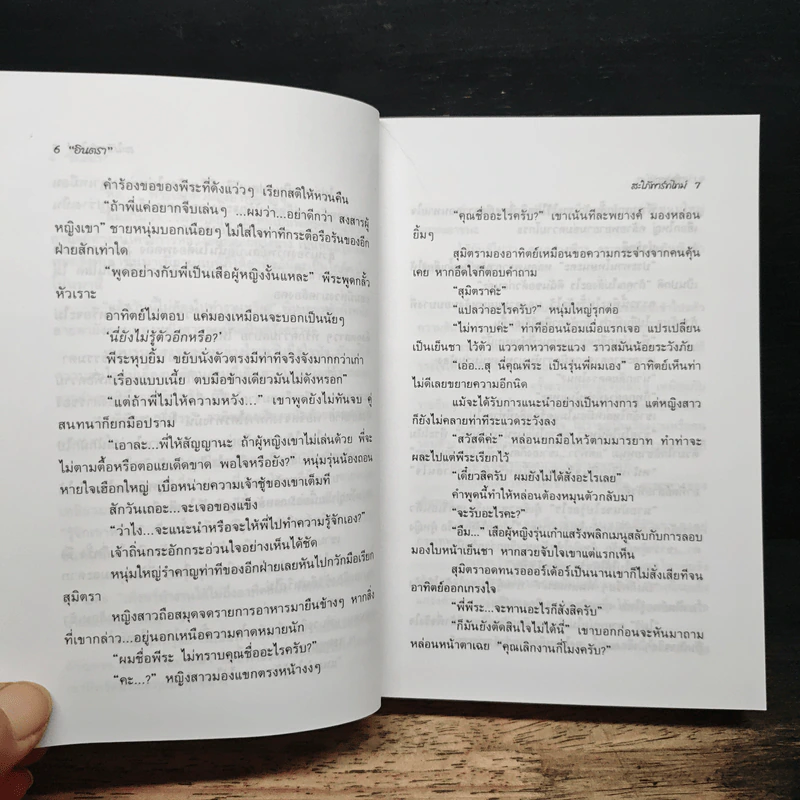 6 "อินตรา"
คำร้องขอของพีระที่ดังแว่วๆ เรียกสติให้หวนคืน
"ถ้าพี่แค่อยากจีบเล่นๆ ...ผมว่า...อย่าดีกว่า สงสารผู้
หญิงเขา" ชายหนุ่มบอกเนือยๆ ไม่ใส่ใจท่าทีกระตือรือร้นของอีก
ฝ่ายสักเท่าใด
"พูดอย่างกับพี่เป็นเสือผู้หญิงงั้นแหละ" พีระพูดกลั้ว
หัวเราะ
อาทิตย์ไม่ตอบ แค่มองเหมือนจะบอกเป็นนัยๆ
'นี่ยังไม่รู้ตัวอีกหรือ?'
พีระหุบยิ้ม ขยับนั่งตัวตรงมีท่าทีจริงจังมากกว่าเก่า
"เรื่องแบบเนี้ย ตบมือข้างเดียวมันไม่ดังหรอก"
"แต่ถ้าพี่ไม่ให้ความหวัง..." เขาพูดยังไม่ทันจบ คู่
สนทนาก็ยกมือปราม
"เอาละ...พี่ให้สัญญานะ ถ้าผู้หญิงเขาไม่เล่นด้วย พี่จะ
ไม่ตามตื้อหรือตอแยเด็ดขาด พอใจหรือยัง?" หนุ่มรุ่นน้องถอน
หายใจเฮือกใหญ่ เบื่อหน่ายความเจ้าชู้ของเขาเต็มที
สักวันเถอะ...จะเจอของแข็ง
"ว่าไง...จะแนะนำหรือจะให้พี่ไปทำความรู้จักเอง?"
เจ้าถิ่นกระอักกระอ่วนใจอย่างเห็นได้ชัด
หนุ่มใหญ่รำคาญท่าทีของอีกฝ่ายเลยหันไปกวักมือเรียก
สุมิตรา
หญิงสาวถือสมุดจดรายการอาหารมายืนข้างๆ หากสิ่ง
ที่เขากล่าว...อยู่นอกเหนือความคาดหมายนัก
"ผมชื่อพีระ ไม่ทราบคุณชื่ออะไรครับ?"
"คะ...?" หญิงสาวมองแขกตรงหน้างงๆ
สะใภ้ทาร์ทใหม่ 7
"คุณชื่ออะไรครับ?" เขาเน้นทีละพยางค์ มองหล่อน
ยิ้มๆ
สุมิตรามองอาทิตย์เหมือนขอความกระจ่างจากคนคุ้น
เคย หากอึดใจก็ตอบคำถาม
"สุมิตราค่ะ"
"แปลว่าอะไรครับ?" หนุ่มใหญ่รุกต่อ
"ไม่ทราบค่ะ" ท่าทีอ่อนน้อมเมื่อแรกเจอ แปรเปลี่ยน
เป็นเย็นชา ไว้ตัว แววตาหวาดระแวง ราวสมันน้อยระวังภัย
"เอ่อ...สุ นี่คุณพีระ เป็นรุ่นพี่ผมเอง" อาทิตย์เห็นท่า
ไม่ดีเลยขยายความอีกนิด
แม้จะได้รับการแนะนำอย่างเป็นทางการ แต่หญิงสาว
ก็ยังไม่คลายท่าทีระแวดระวังลง
"สวัสดีค่ะ" หล่อนยกมือไหว้ตามมารยาท ทำท่าจะ
ผละไปแต่พีระเรียกไว้
"เดี๋ยวสิครับ ผมยังไม่ได้สั่งอะไรเลย"
คำพูดนี้ทำให้หล่อนต้องหมุนตัวกลับมา
"จะรับอะไรคะ?"
"อืม..." เสือผู้หญิงรุ่นเก๋าแสร้งพลิกเมนูสลับกับการลอบ
มองใบหน้าเย็นชา หากสวยจับใจเขาแต่แรกเห็น
สุมิตราอดทนรอออร์เดอร์เป็นนานเขาก็ไม่สั่งเสียทีจน
อาทิตย์ออกเกรงใจ
"พี่พีระ...จะทานอะไรก็สั่งสิครับ"
"ก็มันยังตัดสินใจไม่ได้นี่" เขาบอกก่อนจะหันมาถาม
หล่อนหน้าตาเฉย "คุณเลิกงานกี่โมงครับ?"